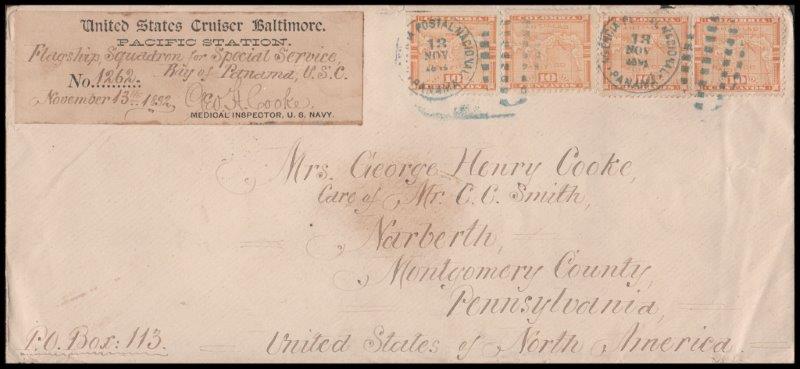 United States Cruiser Baltimore.
PACIFIC STATION.
Flagship, Squadron for Special Service
No. 1262. Bay of Panama, U.S.C.
November 13th 1892. Geo. H. Cooke
MEDICAL INSPECTOR, U. S. NAVY.
COLOMBIA
10 10
AGENCIA POSTAL NACIONAL
13
NOV
PANAMA
10 10
10 10
AGENCIA POSTAL NACIONAL
13
NOV
PANAMA
10 10
Mrs. George Henry Cooke,
Care of Mr. C. C. Smith,
Narberth,
Montgomery County,
Pennsylvania,
P.O. Box: 113. United States of North America.